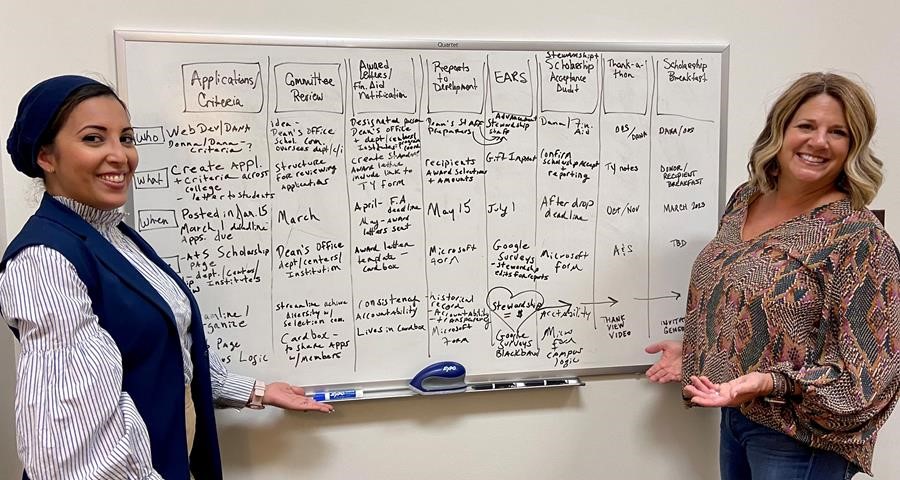 Quartet
Applications/
Criteria
Committee
Review
Award
Letters/
Fin. Aid
Notification
Reports
to
Development
EARS
Stewardship +
Scholarship
Acceptance
Audit
Thank-a-
thon
Scholarship
Breakfast
Who
Web Dev/Dana
Donna/Dana-
Criteria - ?
idea -
Dean's Office
Schol. com.
overseas dept/c/i
Designated person
Dean's Office
+ dept/centers/
Dean's Staff
Preparers
Advancement
Stewardship
Staff
Dana/Fin.
Aid
ODS/
DANA
DANA/ODS
What
Create Appl.
+ Criteria across
college
- letter to students
Structure
for reviewing
applications
Create Standard
Award letter
include link to
TY Form
recipients
Award Selections
+ Amounts
Gift Impact
Confirm
Scholarship Accept
reporting
TY notes
DONOR/
RECIPIENT
BREAKFAST
When
Posted in Jan. 15
March 1 deadline
Apps. due
March
April - F.A
deadline
May - award
letters sent
May 15
July 1
After drop
deadline
Oct/Nov
MARCH 2023
- A+S Scholarship
Page
- dept./center/
Institutes
Dean's Office
dept/centers/
Institution
Award letter
template -
Cardbox
Microsoft
Form
Google
Surveys
- Stewardship
edits for reports
Microsoft
Form
A & S
TBD
Streamline achieve
diversity w/
selection com.
Cardbox -
to share Apps
w/members
Consistency
Accountability
Lives in Cardbox
- historical
record
- Accountability
+ transparency
Microsoft
Form
Stewardship
= $
Google
Surveys
Blackbaud
Actability
Micro
Form
+
campus
logic
THANK
VIEW
VIDEO
Page
Logic
EXPO